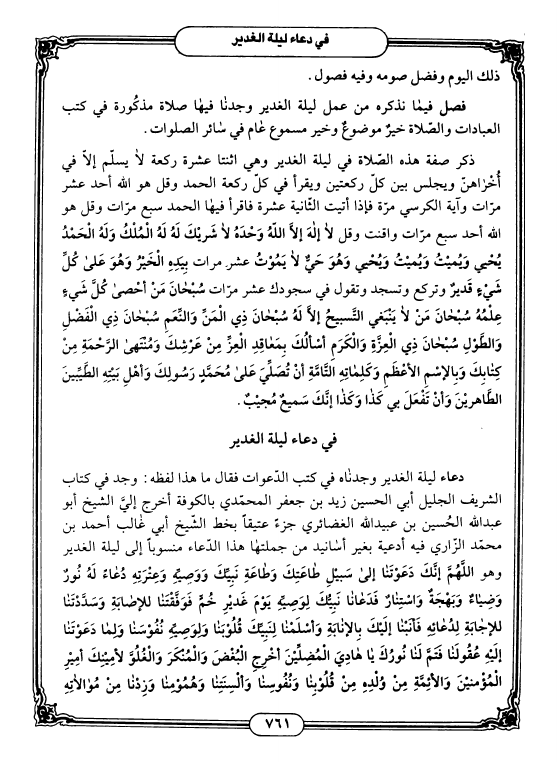 في دعاء ليلة الغدير
ذلك اليوم وفضل صومه وفيه فصول .
فصل فيمٰا نذكره من عمل ليلة الغدير وجدنٰا فيهٰا صلاة مذكُورة في كتب
العبادات والصّلاة خيرٌ موضوعٌ وخير مسموع عٰام في سٰائر الصلوات .
ذكر صفة هذه الصّلاة في ليلة الغدير وهي اثنتا عشرة ركعة لاٰ يسلّم إلاّ في
أُخْرٰاهنّ ويجلس بين كلّ ركعتين ويقرأ في كلّ ركعة الحمد وقل هو الله أحد عشر
مرّات وآية الكرسي مرّة فإذا أتيت الثّانية عشرة فاقرأ فيهٰا الحمد سبع مرّات وقل هو
الله أحد سبع مرّات واقنت وقل لاٰ إلٰهَ إلاَّ اللّٰهُ وَحْدَهُ لاٰ شَريٖكَ لَهُ لَهُ الْمُلْكُ وَلَهُ الْحَمْدُ
يُحْيي وَيُميٖتُ وَيُميٖتُ وَيُحْيي وَهُوَ حَيٌّ لاٰ يَمُوْتُ عشر مرات بِيَدِهِ الْخَيْرُ وَهُوَ عَلىٰ كُلِّ
شَيْءٍ قَديٖرٌ وتركع وتسجد وتقول في سجودك عشر مرّات سُبْحٰانَ مَنْ أحْصىٰ كُلَّ شَيْءٍ
عِلْمُهُ سُبْحٰانَ مَنْ لاٰ يَنْبَغي التَّسبيٖحُ إلاّ لَهُ سُبْحٰانَ ذي الْمَنِّ وَالنِّعَمِ سُبْحٰانَ ذي الْفَضْلِ
وَالطَّوْلِ سُبْحٰانَ ذي الْعِزَّةِ وَالْكَرَمِ أسْألُكَ بِمَعٰاقِدِ الْعِزِّ مِنْ عَرْشِكَ وَمُنْتَهىٰ الرَّحْمَةِ مِنْ
كِتٰابِكَ وَبِالإسْمِ الأعْظَمِ وَكَلِمٰاتِهِ التّٰامَّةِ أنْ تُصَلِّيَ عَلىٰ مُحَمَّدٍ رَسُوْلِكَ وَأهْلِ بَيْتِهِ الطَّيِّبيٖنَ
الطّٰاهِريْنَ وَأنْ تَفْعَلَ بي كَذٰا وَكَذٰا إنَّكَ سَميٖعٌ مُجيٖبٌ .
في دعاء ليلة الغدير
دعاء ليلة الغدير وجدنٰاه في كتب الدّعوات فقال مٰا هذا لفظه : وجد في كتاب
الشريف الجليل أبي الحسين زيد بن جعفر المحمّدي بالكوفة أخرج إليَّ الشيخ أبو
عبدالله الحُسين بن عبيدالله الغضائري جزءً عتيقاً بخط الشّيخ أبي غٰالب أحمد بن
محمّد الزّاري فيه أدعية بغير أسٰانيد من جملتهٰا هذا الدّعاء منسوباً إلى ليلة الغدير
وهو اللّٰهُمَّ إنَّكَ دَعَوْتَنٰا إلىٰ سَبيٖلِ طٰاعَتِكَ وَطٰاعَةِ نَبِيِّكَ وَوَصِيِّهِ وَعِتْرَتِهِ دُعٰاءً لَهُ نُورٌ
وَضِيٰاءٌ وَبَهْجَةٌ وَاسْتِنٰارٌ فَدَعٰانٰا نَبِيُّكَ لِوَصِيِّهِ يَوْمَ غَديٖرِ خُمٍّ فَوَفَّقْتَنٰا لِلإصٰابَةِ وَسَدَّدْتَنٰا
لِلإجٰابَةِ لِدُعٰائِهِ فَأنَبْنٰا إلَيْكَ بِالإنٰابَةِ وَأسْلَمْنٰا لِنَبِيِّكَ قُلُوْبَنٰا وَلِوَصِيِّهِ نُفُوْسَنٰا وَلِمٰا دَعَوْتَنٰا
إلَيْهِ عُقُولَنٰا فَتَمَّ لَنٰا نُورُكَ يٰا هٰاديَ الْمُضِلّيٖنَ أخْرِجِ الْبُغْضَ وَالْمُنْكَرَ وَالْغُلُوَّ لأميٖنِكَ أميٖرِ
الْمُؤْمنيٖنَ وَالأئِمَّةِ مِنْ وُلْدِهِ مِنْ قُلُوْبِنٰا وَنُفُوْسِنٰا وَألْسِنَتِنٰا وَهُمُوْمِنٰا وَزِدْنٰا مِنْ مُوٰالاٰتِهِ
٧٦١